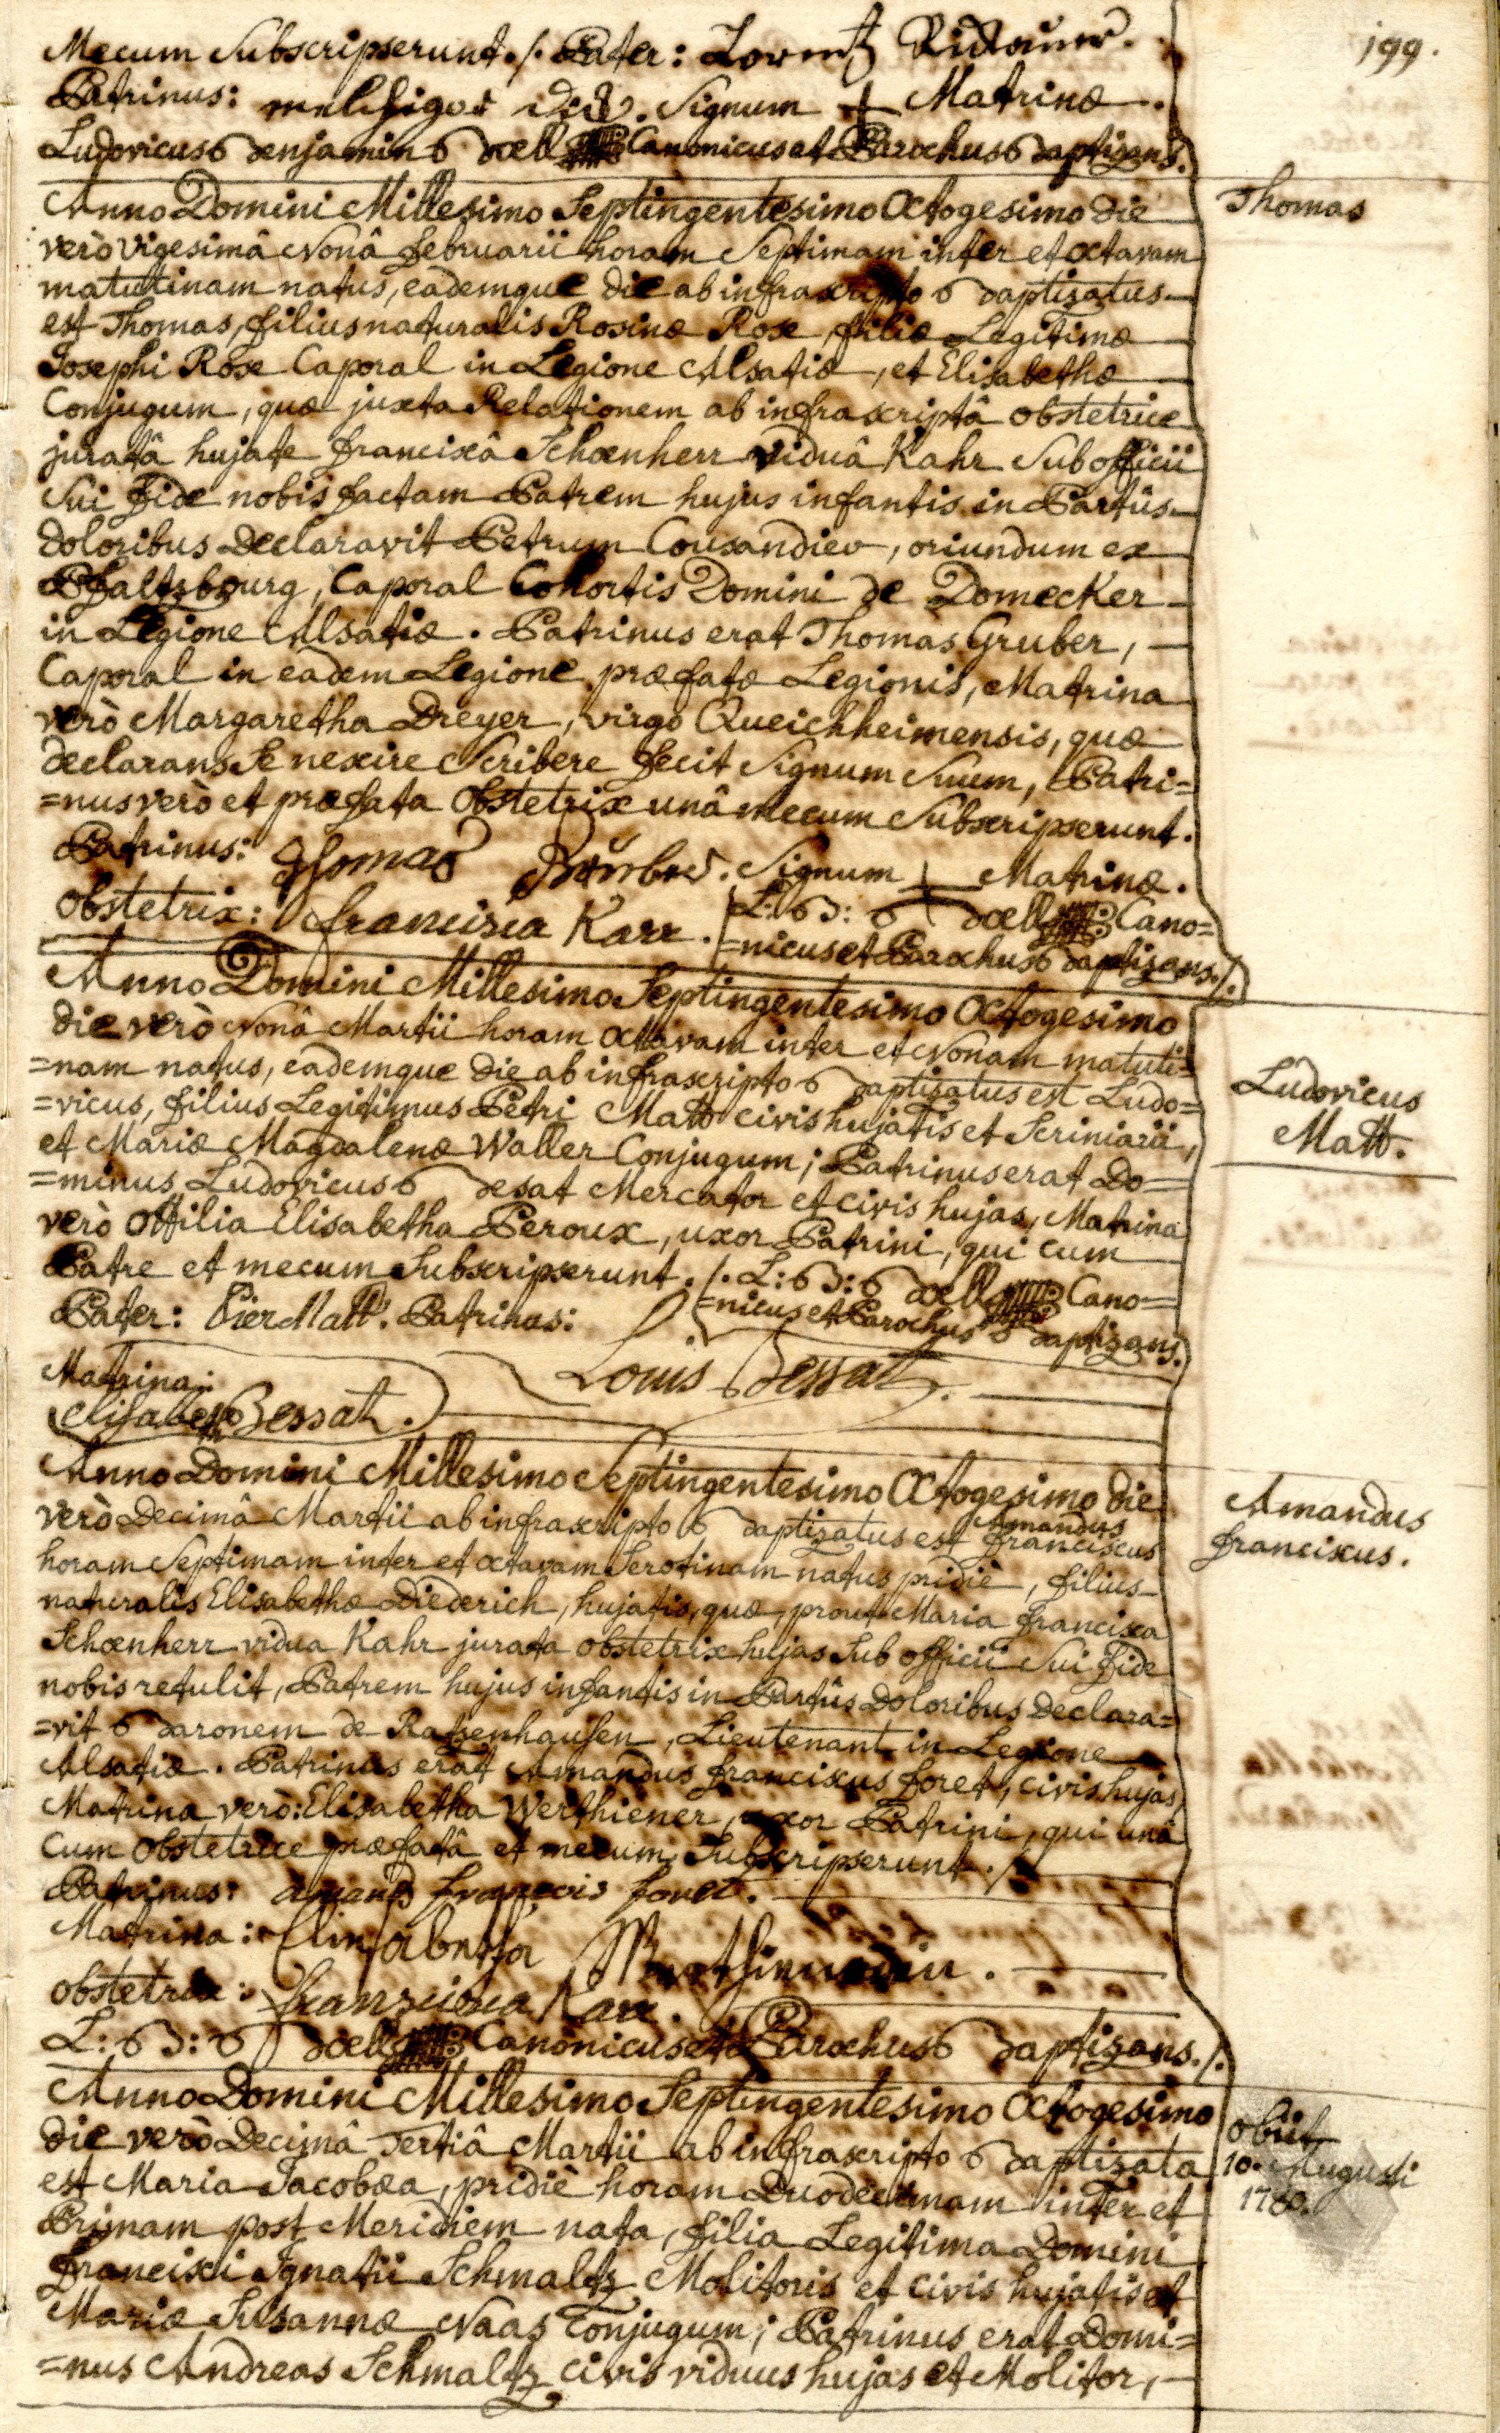 199.
Mecum Subscripserunt ./. Pater: Lorentz
Patrinus: Signum + Matrinæ.
Ludovicus Benjamin Böell Canonicus et Parochus Baptizans.
Thomas
Anno Domini Millesimo Septingentesimo Octogesimo die
verò vigesimâ Nonâ februarii horam Septimam inter et octavam
matutinam natus, eademque die ab infrascripto Baptizatus
est Thomas, filius naturalis Rosinæ Rose, filiæ Legitimæ
Josephi Rose Caporal in Legione Alsatiæ, et Elisabethæ
Conjugum, quæ juxta Relationem ab infrascriptâ obstetrice
juratâ hujate franciscâ Schœnherr viduâ Kahr sub officii
sui fide nobis factam Patrem hujus infantis in Partûs
doloribus declaravit Petrum Cousandier, oriundum ex
Pfaltzbourg, Caporal Cohortis Domini de Domecker
in Legione Alsatiæ. Patrinus erat Thomas Gruber,
Caporal in eadem Legione præfatæ Legionis, Matrina
verò Margaretha Dreyer, virgo Queichheimensis, quæ
declarans se nescire scribere fecit signum suum, Patri=
=nus verò et præfata obstetrix unâ mecum subscripserunt.
Patrinus: Thomas Signum + Matrinæ.
obstetrix: francisca Karr. L: B: Böell Cano=
=nicus et Parochus Baptizans./.
Anno Domini Millesimo Septingentesimo Octogesimo
die verò Nonâ Martii horam octavam inter et Nonam matuti=
=nam natus, eademque die ab infrascripto Baptizatus est Ludo=
=vicus, filius Legitimus Petri Matt civis hujatis et Scriniarii,
et Mariæ Magdalenæ Waller Conjugum; Patrinus erat Do=
=minus Ludovicus Besat Mercator et civis hujas, Matrina
verò Ottilia Elisabetha Peroux, uxor Patrini, qui cum
Patre et mecum subscripserunt ./. L: B: Böell Cano=
=nicus et Parochus Baptizans.
Ludovicus
Matt.
Pater: Pier Matt. Patrinus:
Louis Bessat.
Matrina:
Elisabeth Bessat.
Anno Domini Millesimo Septingentesimo Octogesimo die
verò Decimâ Martii ab infrascripto Baptizatus est Amandus franciscus
horam Septimam inter et octavam Serotinam natus pridiè, filius
naturalis Elisabethæ Diederich, hujatis, quæ, prout Maria francisca
Schœnherr vidua Kahr jurata obstetrix hujas sub officii sui fide
nobis retulit, Patrem hujus infantis in Partûs doloribus declara=
=vit Baronem de Ratsenhausen, Lieutenant in Legione
Alsatiæ. Patrinus erat Amandus franciscus foret, civis hujas,
Matrina verò: Elisabetha Werthiener, uxor Patrini, qui unâ
cum obstetrice præfatâ et mecum subscripserunt ./.
Amandus
franciscus.
Patrinus: amand françois foret.
Matrina:
obstetrix: Karr.
L: B: Böell Canonicus et Parochus Baptizans./.
Anno Domini Millesimo Septingentesimo Octogesimo
die verò Decimâ Tertiâ Martii ab infrascripto Baptizata
est Maria Jacobæa, pridiè horam Duodecimam inter et
Primam post Meridiem nata, filia Legitima Domini
francisci Ignatii Schmaltz Molitoris et civis hujatis et
Mariæ Susannæ Naas Conjugum; Patrinus erat Domi=
=nus Andreas Schmaltz civis viduus hujas et Molitor,
obiit
10. Augusti
1780.